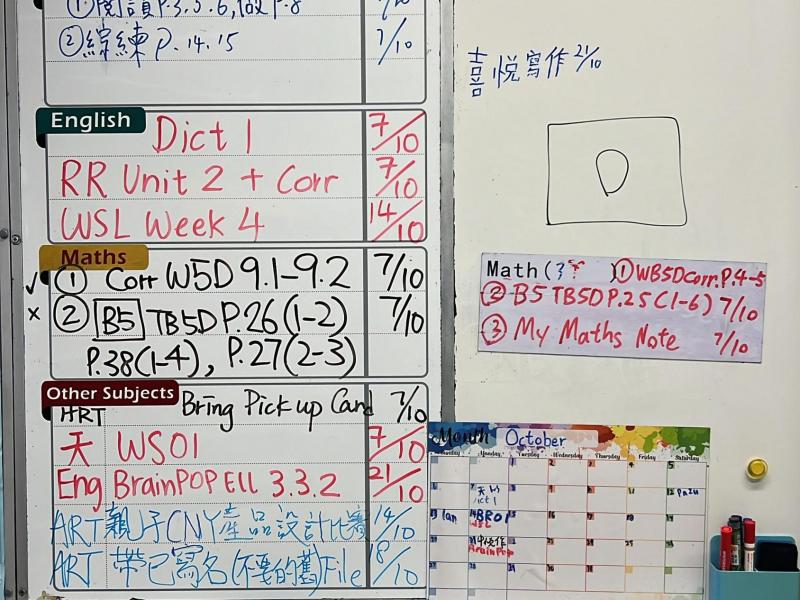 ①閱讀P.3,5,6,做P.8
②綜練P.14.15 7/10
English
Dict 1 7/10
RR Unit 2 + Corr 7/10
WSL Week 4 14/10
Maths
✓ ① Corr W5D 9.1-9.2 7/10
× ② B5 TB5D P.26(1-2) 7/10
P.38(1-4), P.27(2-3)
Other Subjects
ART Bring Pick up Card 7/10
天 WS01 7/10
Eng BrainPOP ELL 3.3.2 21/10
ART 親子CNY產品設計比賽 14/10
ART 帶已寫名(不要的舊)File 18/10
喜悅寫作 21/10
Math( ) ①WB5DCorr.P.4-5
② B5 TB5D P.25(1-6) 7/10
③ My Maths Note 7/10
Month October
Monday Tuesday Wednesday Thursday Friday Saturday